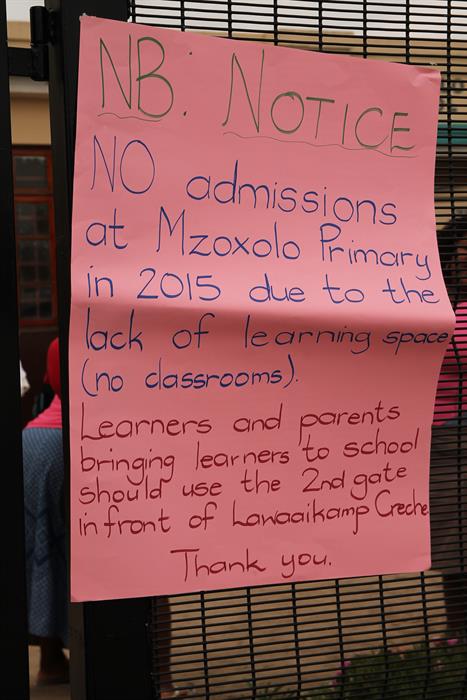 NB: NOTICE
NO admissions
at Mzoxolo Primary
in 2015 due to the
lack of learning space
(no classrooms).
Learners and parents
bringing learners to school
should use the 2nd gate
in front of Lawaaikamp Creche
Thank you.